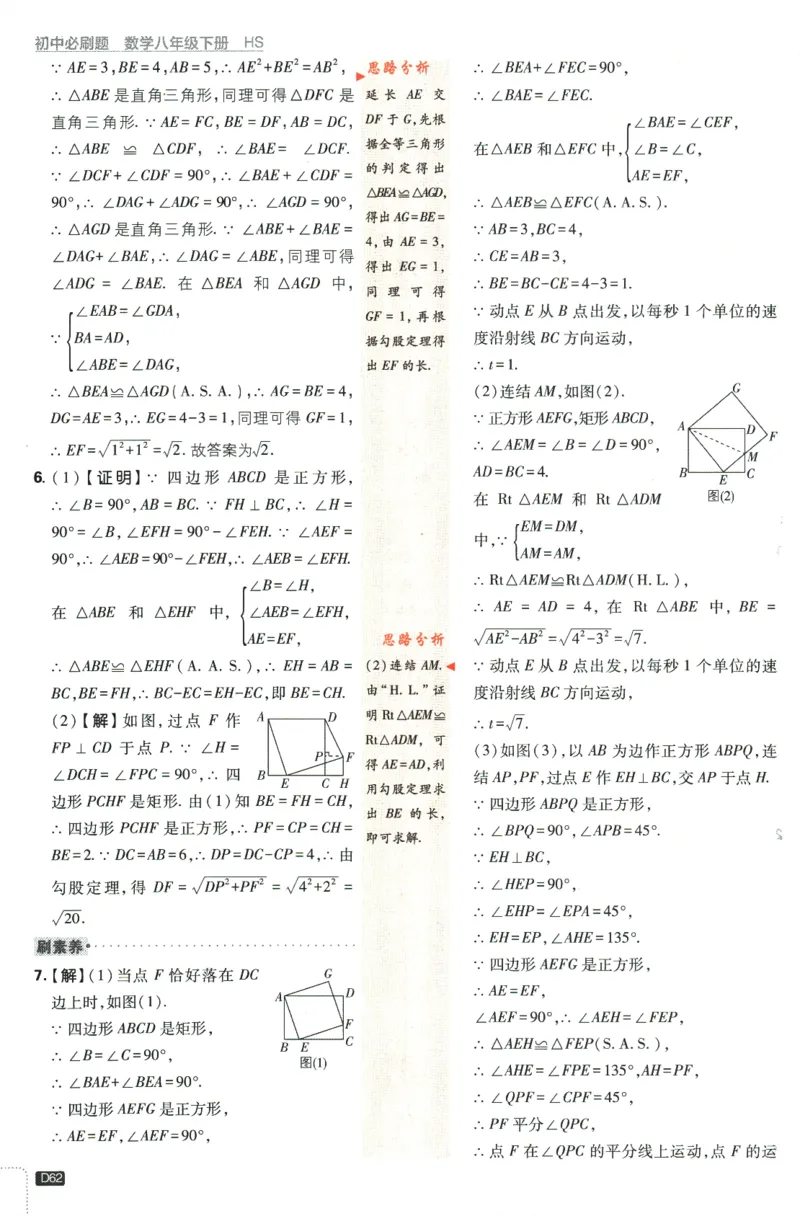 初中必刷题 数学八年级下册 HS
∵ AE=3,BE=4,AB=5,∴ AE²+BE²=AB²,
∴ △ABE 是直角三角形,同理可得△DFC 是
直角三角形. ∵ AE=FC,BE=DF,AB=DC,
∴ △ABE ≌ △CDF, ∴ ∠BAE= ∠DCF.
∵ ∠DCF+∠CDF=90°,∴ ∠BAE+∠CDF=
90°,∴ ∠DAG+∠ADG=90°,∴ ∠AGD=90°,
∴ △AGD 是直角三角形. ∵ ∠ABE+∠BAE=
∠DAG+∠BAE,∴ ∠DAG=∠ABE,同理可得
∠ADG = ∠BAE. 在 △BEA 和 △AGD 中,
∵ {∠EAB=∠GDA,
BA=AD,
∠ABE=∠DAG,
∴ △BEA≌△AGD(A. S. A. ),∴ AG=BE=4,
DG=AE=3,∴ EG=4-3=1,同理可得 GF=1,
∴ EF=√(1²+1²)=√2. 故答案为√2.
6. (1)【证明】∵ 四边形 ABCD 是正方形,
∴ ∠B=90°,AB=BC. ∵ FH⊥BC,∴ ∠H=
90°=∠B,∠EFH=90°-∠FEH. ∵ ∠AEF=
90°,∴ ∠AEB=90°-∠FEH,∴ ∠AEB=∠EFH.
在 △ABE 和 △EHF 中, {∠B=∠H,
∠AEB=∠EFH,
AE=EF,
∴ △ABE≌△EHF(A. A. S. ),∴ EH=AB=
BC,BE=FH,∴ BC-EC=EH-EC,即 BE=CH.
(2)【解】如图,过点 F 作
FP⊥CD 于点 P. ∵ ∠H=
∠DCH=∠FPC=90°,∴ 四
A D P F B E C H
边形 PCHF 是矩形. 由(1)知 BE=FH=CH,
∴ 四边形 PCHF 是正方形,∴ PF=CP=CH=
BE=2. ∵ DC=AB=6,∴ DP=DC-CP=4,∴ 由
勾股定理,得 DF = √(DP²+PF²) = √(4²+2²) =
√20.
刷素养
7.【解】(1)当点 F 恰好落在 DC
边上时,如图(1).
∵ 四边形 ABCD 是矩形,
∴ ∠B=∠C=90°,
∴ ∠BAE+∠BEA=90°.
∵ 四边形 AEFG 是正方形,
∴ AE=EF,∠AEF=90°,
G A D F B E C
图(1)
思路分析
延长 AE 交
DF 于 G,先根
据全等三角形
的判定得出
△BEA≌△AGD,
得出 AG=BE=
4,由 AE=3,
得出 EG=1,
同理可得
GF=1,再根
据勾股定理得
出 EF 的长.
思路分析
(2)连结 AM.
由“H. L.”证
明 Rt△AEM≌
Rt△ADM,可
得 AE=AD,利
用勾股定理求
出 BE 的长,
即可求解.
∴ ∠BEA+∠FEC=90°,
∴ ∠BAE=∠FEC.
在△AEB 和△EFC 中, {∠BAE=∠CEF,
∠B=∠C,
AE=EF,
∴ △AEB≌△EFC(A. A. S. ).
∵ AB=3,BC=4,
∴ CE=AB=3,
∴ BE=BC-CE=4-3=1.
∵ 动点 E 从 B 点出发,以每秒 1 个单位的速
度沿射线 BC 方向运动,
∴ t=1.
(2)连结 AM,如图(2).
∵ 正方形 AEFG,矩形 ABCD,
∴ ∠AEM=∠B=∠D=90°,
AD=BC=4.
G A D F M B E C
图(2)
在 Rt △AEM 和 Rt △ADM
中,∵ {EM=DM,
AM=AM,
∴ Rt△AEM≌Rt△ADM(H. L. ),
∴ AE = AD = 4, 在 Rt △ABE 中, BE =
√(AE²-AB²)=√(4²-3²)=√7.
∵ 动点 E 从 B 点出发,以每秒 1 个单位的速
度沿射线 BC 方向运动,
∴ t=√7.
(3)如图(3),以 AB 为边作正方形 ABPQ,连
结 AP,PF,过点 E 作 EH⊥BC,交 AP 于点 H.
∵ 四边形 ABPQ 是正方形,
∴ ∠BPQ=90°,∠APB=45°.
∵ EH⊥BC,
∴ ∠HEP=90°,
∴ ∠EHP=∠EPA=45°,
∴ EH=EP,∠AHE=135°.
∵ 四边形 AEFG 是正方形,
∴ AE=EF,
∠AEF=90°,∴ ∠AEH=∠FEP,
∴ △AEH≌△FEP(S. A. S. ),
∴ ∠AHE=∠FPE=135°,AH=PF,
∴ ∠QPF=∠CPF=45°,
∴ PF 平分∠QPC,
∴ 点 F 在∠QPC 的平分线上运动,点 F 的运
D62